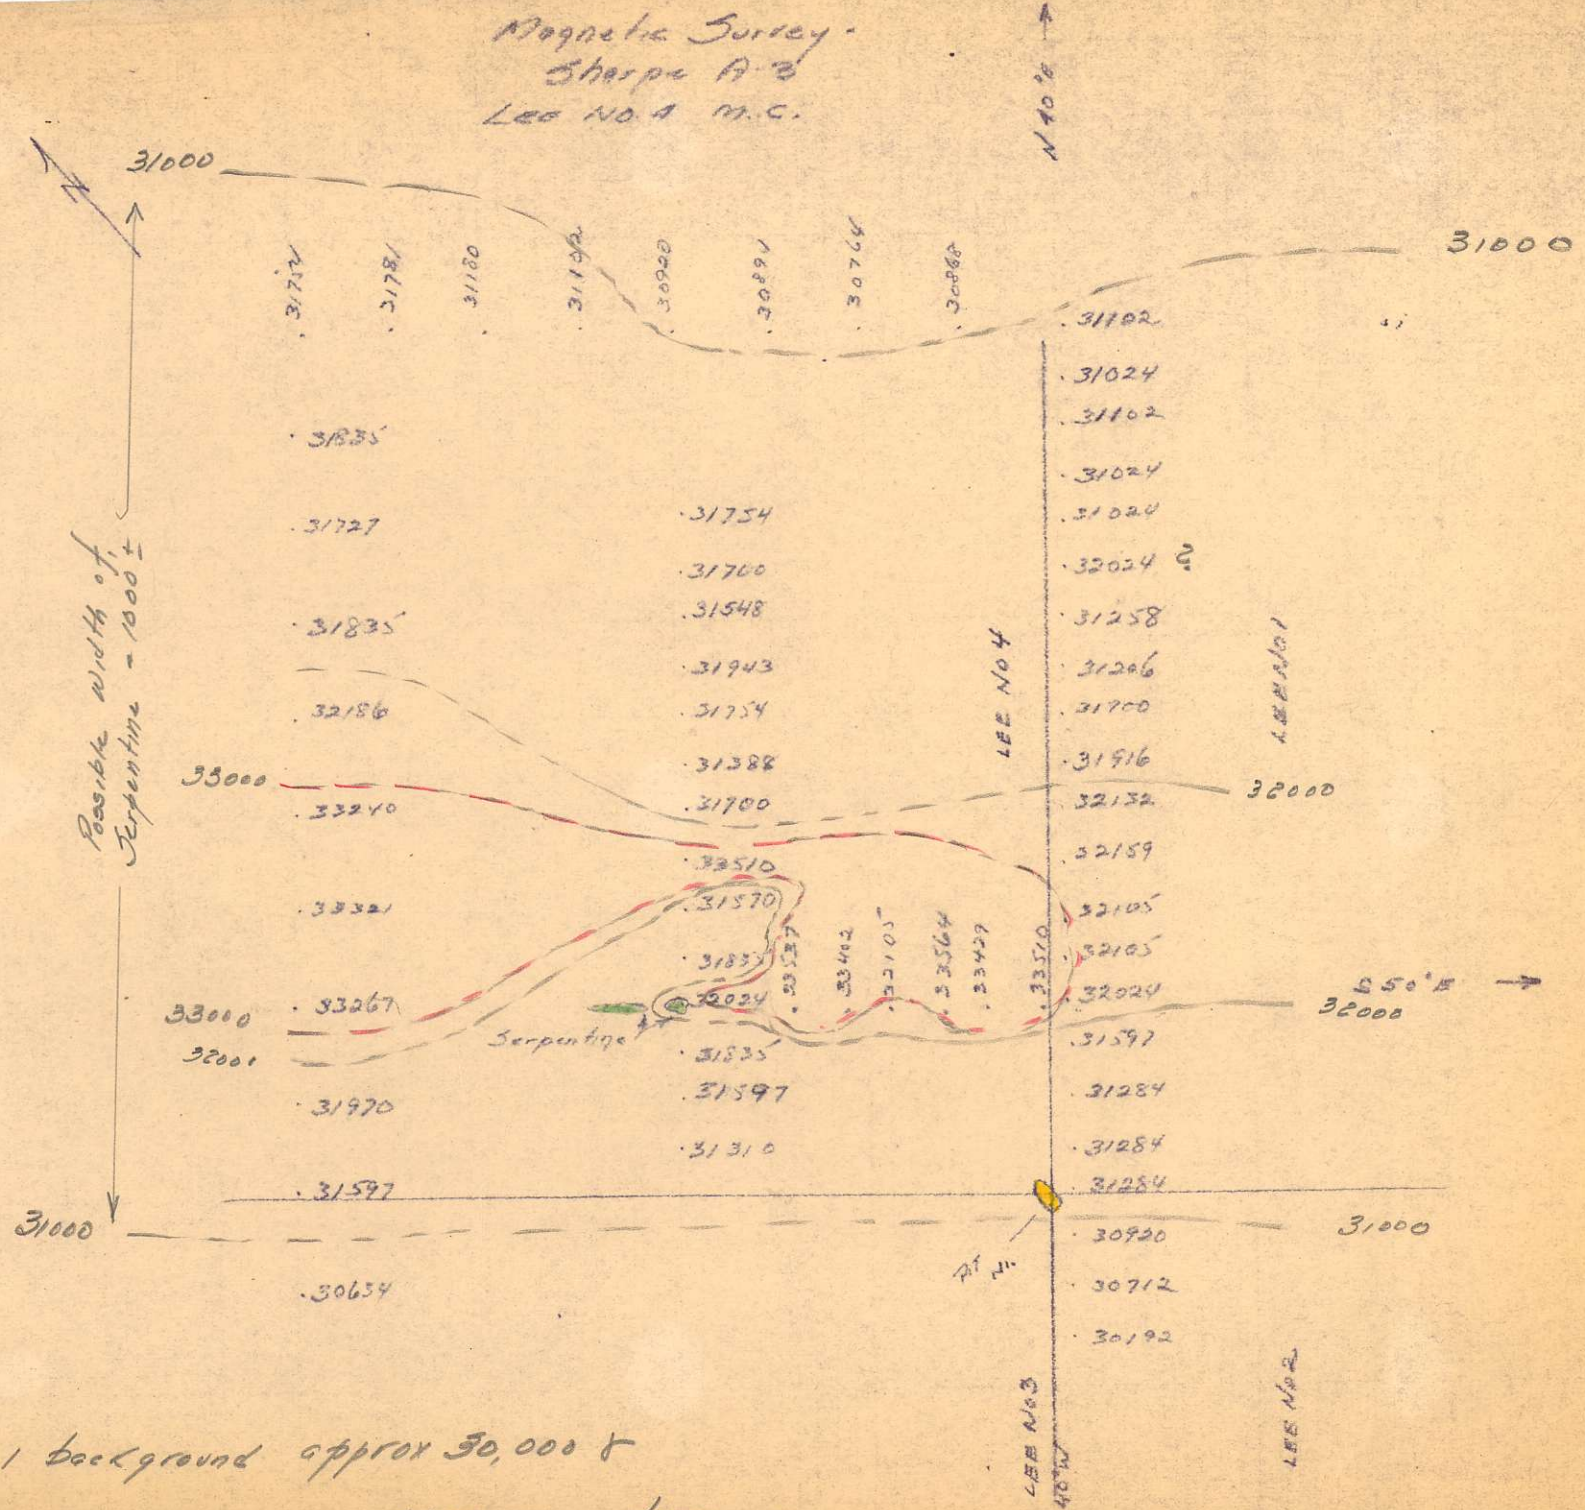 Magnetic Survey.
Sharpe A-3
Lee No. 4 M.C.
N 40°E
N
31000
31000
31754
31781
31180
31102
30920
30894
30764
30868
31102
31024
31102
31024
31024
32024 ?
31258
31206
31700
31916
32132
32159
32105
32105
32024
31597
31284
31284
31284
30920
30712
30192
31835
31727
31835
32186
33000
33240
33321
33267
33000
32000
31970
31597
31000
30654
31754
31700
31548
31943
31754
31388
31700
33510
31570
31835
32024
31835
31597
31310
33537
33402
32105
33564
33429
33510
Possible width of
Serpentine - 1000 ±
Serpentine
LEE NO 4
LEE NO 1
32000
S 50°E
32000
31000
LEE NO 3
40°W
LEE NO 2
background approx 30,000 γ